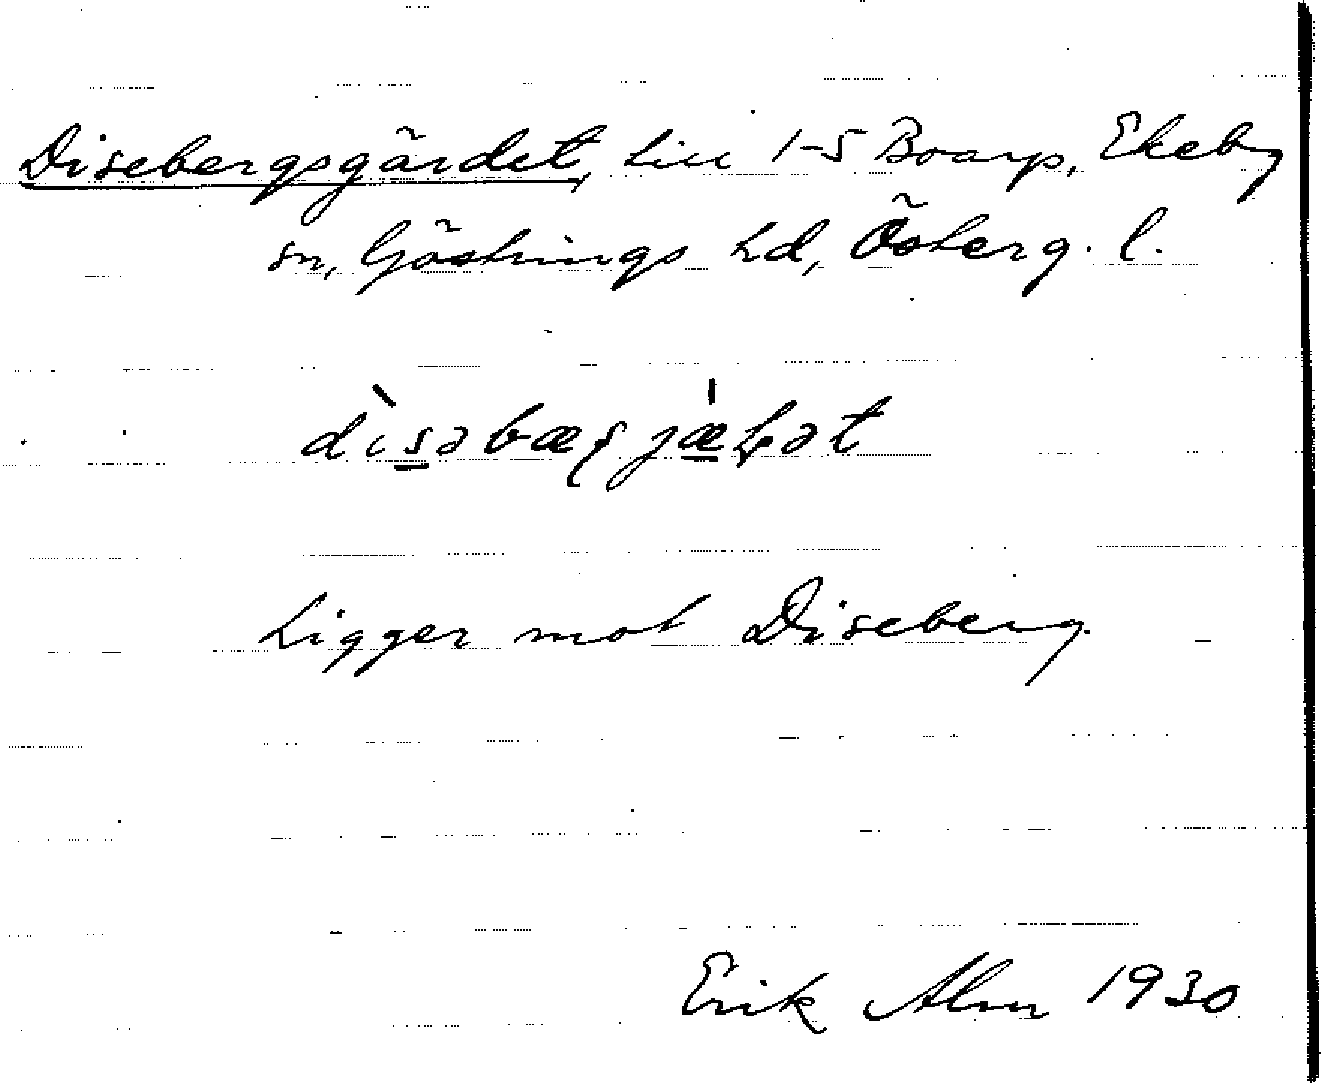 Disebergsgärdet, till 1-5 Boarp, Ekeby
sn, Göstrings hd, Österg. l.
dìsəbæꞔjæ̍ḥət
Ligger mot Diseberg.
Erik Alm 1930